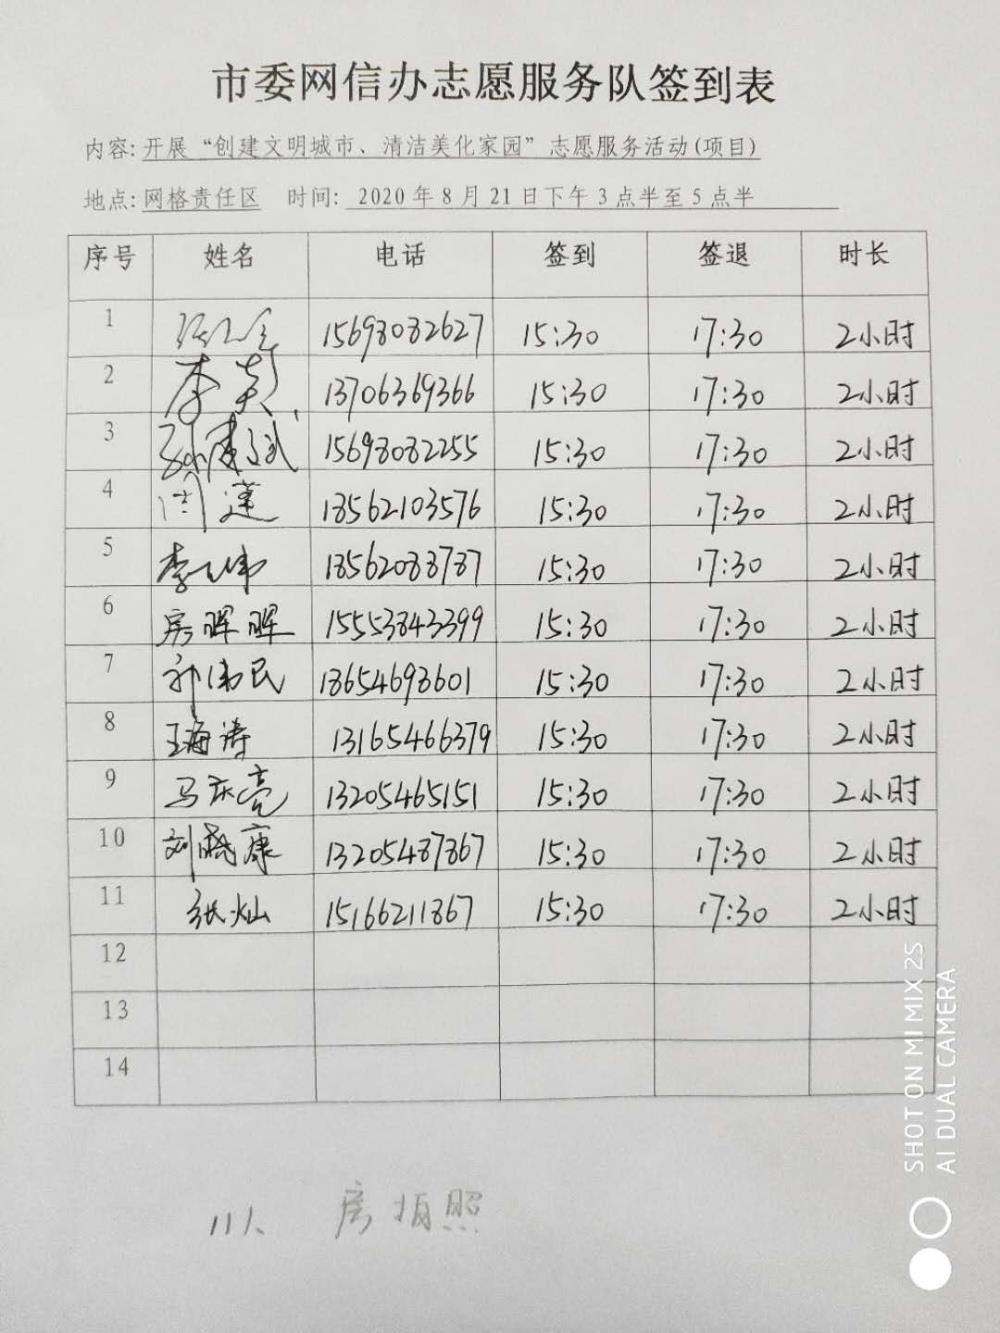 市委网信办志愿服务队签到表
内容: 开展“创建文明城市、清洁美化家园”志愿服务活动(项目)
地点: 网格责任区 时间: 2020年8月21日下午3点半至5点半
序号 姓名 电话 签到 签退 时长
1 15698082627 15:30 17:30 2小时
2 李 13706369366 15:30 17:30 2小时
3 15698082255 15:30 17:30 2小时
4 周莲 18562103576 15:30 17:30 2小时
5 李 18562088787 15:30 17:30 2小时
6 房晖晖 15553843399 15:30 17:30 2小时
7 郭伟民 18654698601 15:30 17:30 2小时
8 王海涛 13165466379 15:30 17:30 2小时
9 马庆亮 13205465151 15:30 17:30 2小时
10 刘晓康 13205487867 15:30 17:30 2小时
11 张灿 15166211867 15:30 17:30 2小时
12
13
14
11人 房拍照
SHOT ON MI MIX 2S
AI DUAL CAMERA